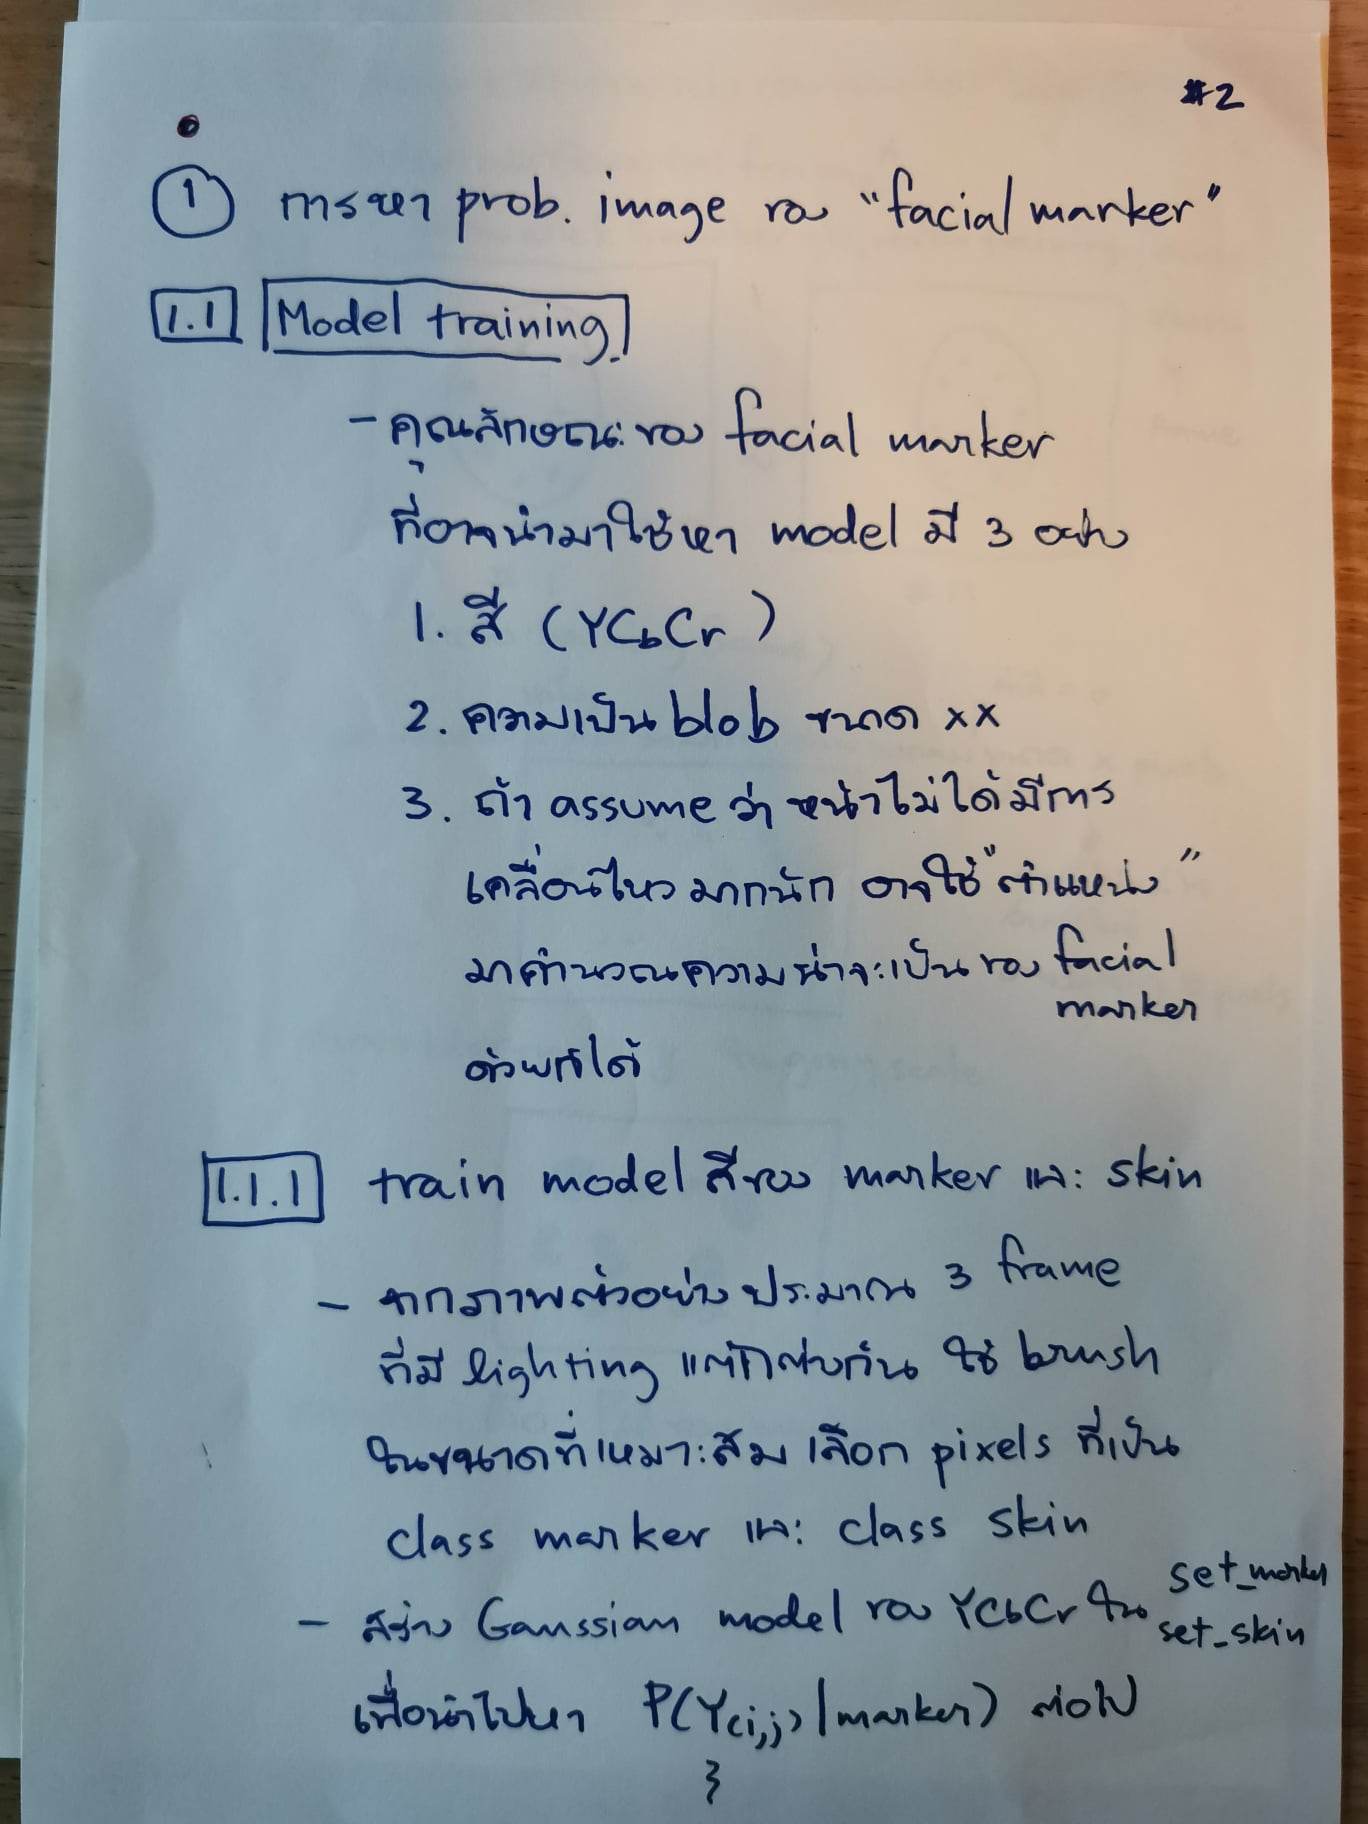 #2
① การหา prob. image ของ "facial marker"
1.1 Model training
- คุณลักษณะของ facial marker
ที่อาจนำมาใช้หา model มี 3 อย่าง
1. สี (YCbCr)
2. ความเป็น blob ขนาด xx
3. ถ้า assume ว่าหน้าไม่ได้มีการ
เคลื่อนไหวมากนัก อาจใช้ "ตำแหน่ง"
มาคำนวณความน่าจะเป็นของ facial
marker
ด้วยก็ได้
1.1.1 train model สีของ marker และ skin
- จากภาพตัวอย่างประมาณ 3 frame
ที่มี lighting แตกต่างกัน ใช้ brush
ในขนาดที่เหมาะสม เลือก pixels ที่เป็น
class marker และ class skin
- สร้าง Gaussian model ของ YCbCr ใน set_marker
set_skin
เพื่อนำไปหา P(Y(i,j)|marker) ต่อไป
3